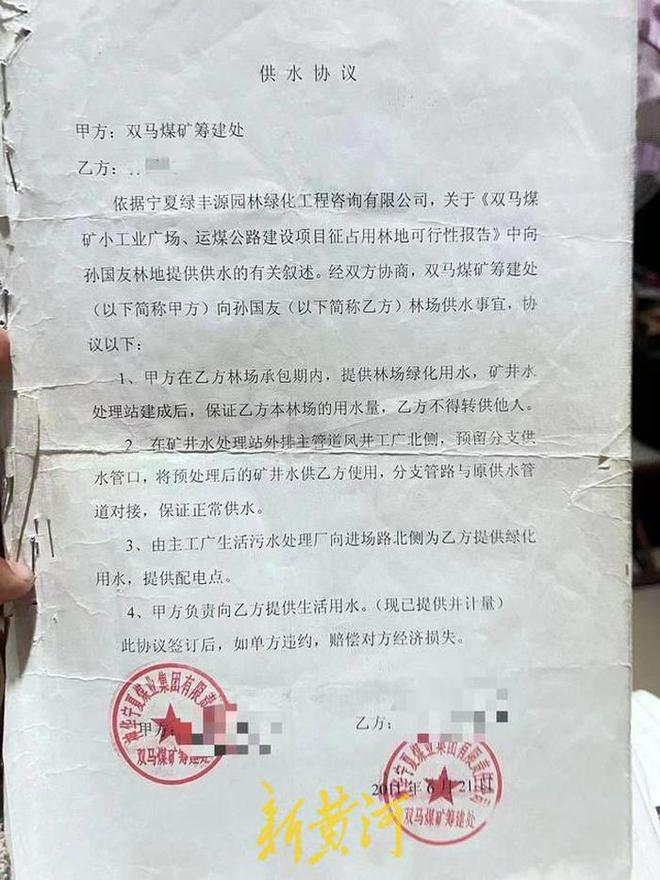 供水协议
甲方：双马煤矿筹建处
乙方：
依据宁夏绿丰源园林绿化工程咨询有限公司，关于《双马煤
矿小工业广场、运煤公路建设项目征占用林地可行性报告》中向
孙国友林地提供供水的有关叙述。经双方协商，双马煤矿筹建处
（以下简称甲方）向孙国友（以下简称乙方）林场供水事宜，协
议以下：
1、甲方在乙方林场承包期内，提供林场绿化用水，矿井水
处理站建成后，保证乙方本林场的用水量，乙方不得转供他人。
2、在矿井水处理站外排主管道风井工广北侧，预留分支供
水管口，将预处理后的矿井水供乙方使用，分支管路与原供水管
道对接，保证正常供水。
3、由主工广生活污水处理厂向进场路北侧为乙方提供绿化
用水，提供配电点。
4、甲方负责向乙方提供生活用水。（现已提供并计量）
此协议签订后，如单方违约，赔偿对方经济损失。
甲方：
乙方：
神华宁夏煤业集团有限责任公司
双马煤矿筹建处
2011年6月21日
神华宁夏煤业集团有限责任公司
双马煤矿筹建处
新黄河